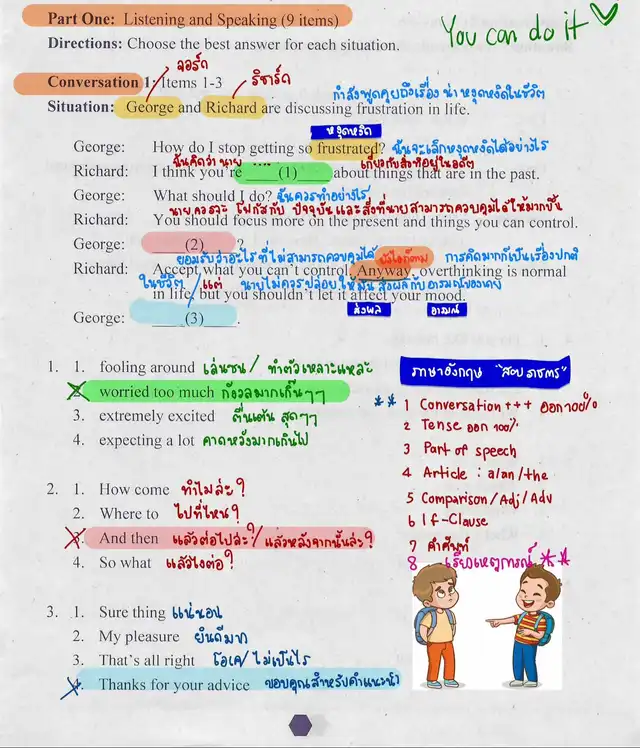 Part One: Listening and Speaking (9 items)
You can do it
Directions: Choose the best answer for each situation.
จอร์ก ริชาร์ด
Conversation 1: Items 1-3
กำลังพูดคุยถึงเรื่อง น่าหงุดหงิดในชีวิต
Situation: George and Richard are discussing frustration in life.
หงุดหงิด
George: How do I stop getting so frustrated? ฉันจะเลิกหงุดหงิดได้อย่างไร
ฉันคิดว่า นาย .... เกี่ยวกับสิ่งที่อยู่ในอดีต
Richard: I think you're (1) about things that are in the past.
George: What should I do? ฉันควรทำอย่างไร
นายควรจะ โฟกัสกับ ปัจจุบันและสิ่งที่นายสามารถควบคุมได้ให้มากขึ้น
Richard: You should focus more on the present and things you can control.
George: (2) ?
ยอมรับว่าอะไรที่ไม่สามารถควบคุมได้ ยังไงก็ตาม การคิดมากก็เป็นเรื่องปกติ
Richard: Accept what you can't control. Anyway, overthinking is normal
ในชีวิต / แต่ นายไม่ควรปล่อยให้มัน ส่งผลกับ อารมณ์ของนาย
in life, but you shouldn't let it affect your mood.
ส่งผล อารมณ์
George: (3) .
1. 1. fooling around เล่นซน / ทำตัวเหลาะแหละ
2. worried too much กังวลมากเกิ๊นๆๆ
3. extremely excited ตื่นเต้น สุดๆๆ
4. expecting a lot คาดหวังมากเกินไป
2. 1. How come ทำไมล่ะ?
2. Where to ไปที่ไหน?
3. And then แล้วต่อไปล่ะ? / แล้วหลังจากนั้นล่ะ?
4. So what แล้วไงต่อ?
3. 1. Sure thing แน่นอน
2. My pleasure ยินดีมาก
3. That's all right โอเค / ไม่เป็นไร
4. Thanks for your advice ขอบคุณสำหรับคำแนะนำ
ภาษาอังกฤษ "สอบ ราชการ"
** 1 Conversation +++ ออก 100%
2 Tense ออก 100%
3 Part of speech
4 Article : a/an/the
5 Comparison/Adj/Adv
6 If-Clause
7 คำศัพท์
8 เรียงเหตุการณ์ **